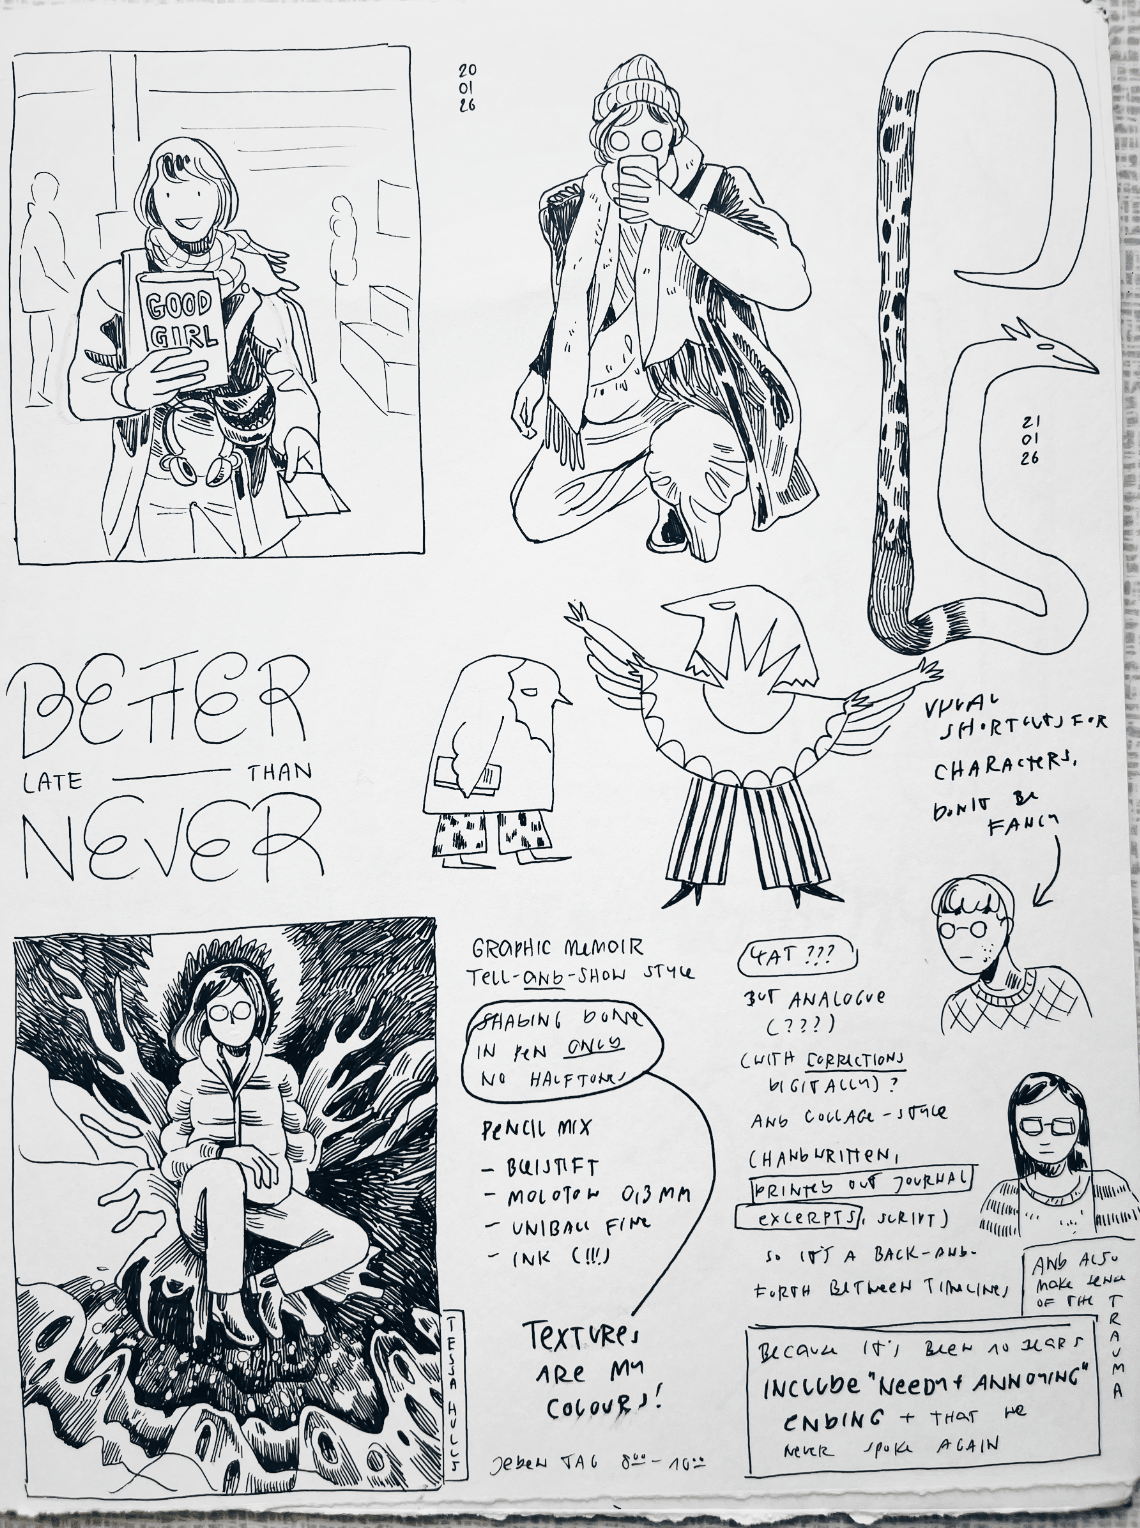 20
01
26
GOOD
GIRL
21
01
26
BETTER
LATE — THAN
NEVER
VISUAL
SHORTCUTS FOR
CHARACTERS,
DON'T BE
FANCY
GRAPHIC MEMOIR
TELL-AND-SHOW STYLE
SHADING DONE
IN PEN ONLY
NO HALFTONES
PENCIL MIX
- BLEISTIFT
- MOLOTOW 0,3 MM
- UNIBALL FINE
- INK (!!!)
TEXTURES
ARE MY
COLOURS!
JEDEN TAG 8⁰⁰ - 10⁰⁰
TESSA HULLS
4AT ???
BUT ANALOGUE
(???)
(WITH CORRECTIONS
DIGITALLY) ?
AND COLLAGE-STYLE
(HANDWRITTEN,
PRINTED OUT JOURNAL
EXCERPTS, SCRIPT)
SO IT'S A BACK-AND-
FORTH BETWEEN TIMELINES
AND ALSO
MAKE SENSE
OF THE TRAUMA
BECAUSE IT'S BEEN 10 YEARS
INCLUDE "NEEDY + ANNOYING"
ENDING + THAT WE
NEVER SPOKE AGAIN